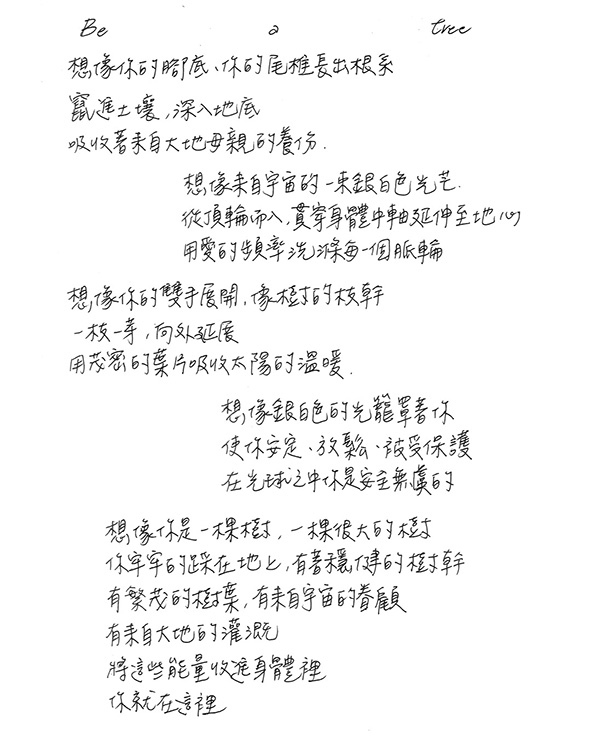 Be a tree
想像你的腳底、你的尾椎長出根系
竄進土壤,深入地底
吸收著來自大地母親的養份.
想像來自宇宙的一束銀白色光芒.
從頂輪而入,貫穿身體中軸延伸至地心
用愛的頻率洗滌每一個脈輪
想像你的雙手展開,像樹的枝幹
一枝一芽,向外延展
用茂密的葉片吸收太陽的溫暖.
想像銀白色的光籠罩著你
使你安定、放鬆、被受保護
在光球之中你是安全無虞的
想像你是一棵樹,一棵很大的樹
你牢牢的踩在地上,有著穩健的樹幹
有繁茂的樹葉,有來自宇宙的眷顧
有來自大地的灌溉
將這些能量收進身體裡
你就在這裡